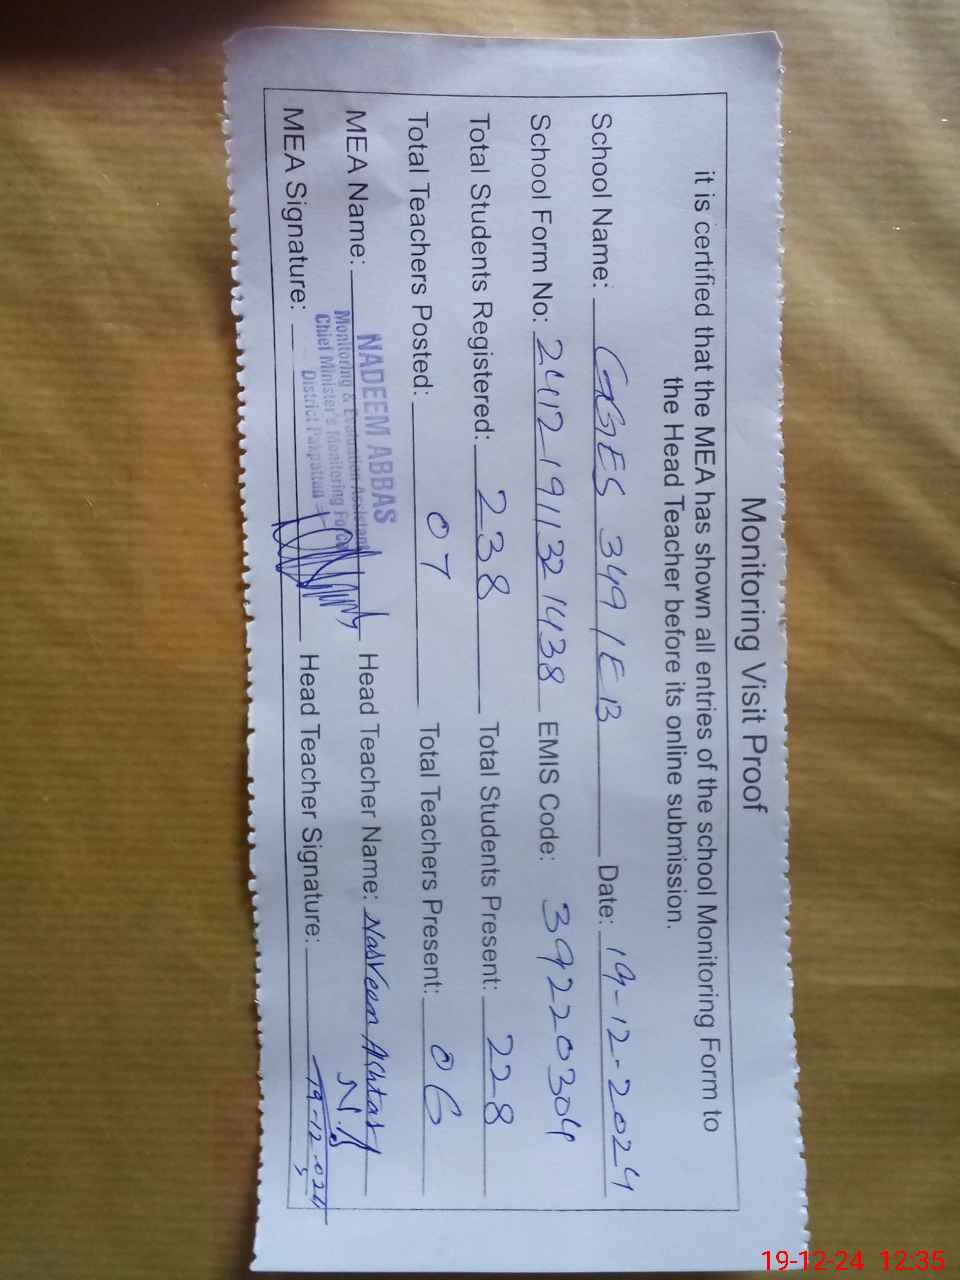 Monitoring Visit Proof
it is certified that the MEA has shown all entries of the school Monitoring Form to
the Head Teacher before its online submission.
School Name: GGES 349/EB Date: 19-12-2024
School Form No: 2412-191132 1438 EMIS Code: 39220304
Total Students Registered: 238 Total Students Present: 228
Total Teachers Posted: 07 Total Teachers Present: 06
MEA Name: NADEEM ABBAS Head Teacher Name: Nasreen Akhtar
Monitoring & Evaluation Assistant
Chief Minister's Monitoring Force
District Pakpattan
MEA Signature: Head Teacher Signature: N.A
19-12-024
19-12-24 12:35